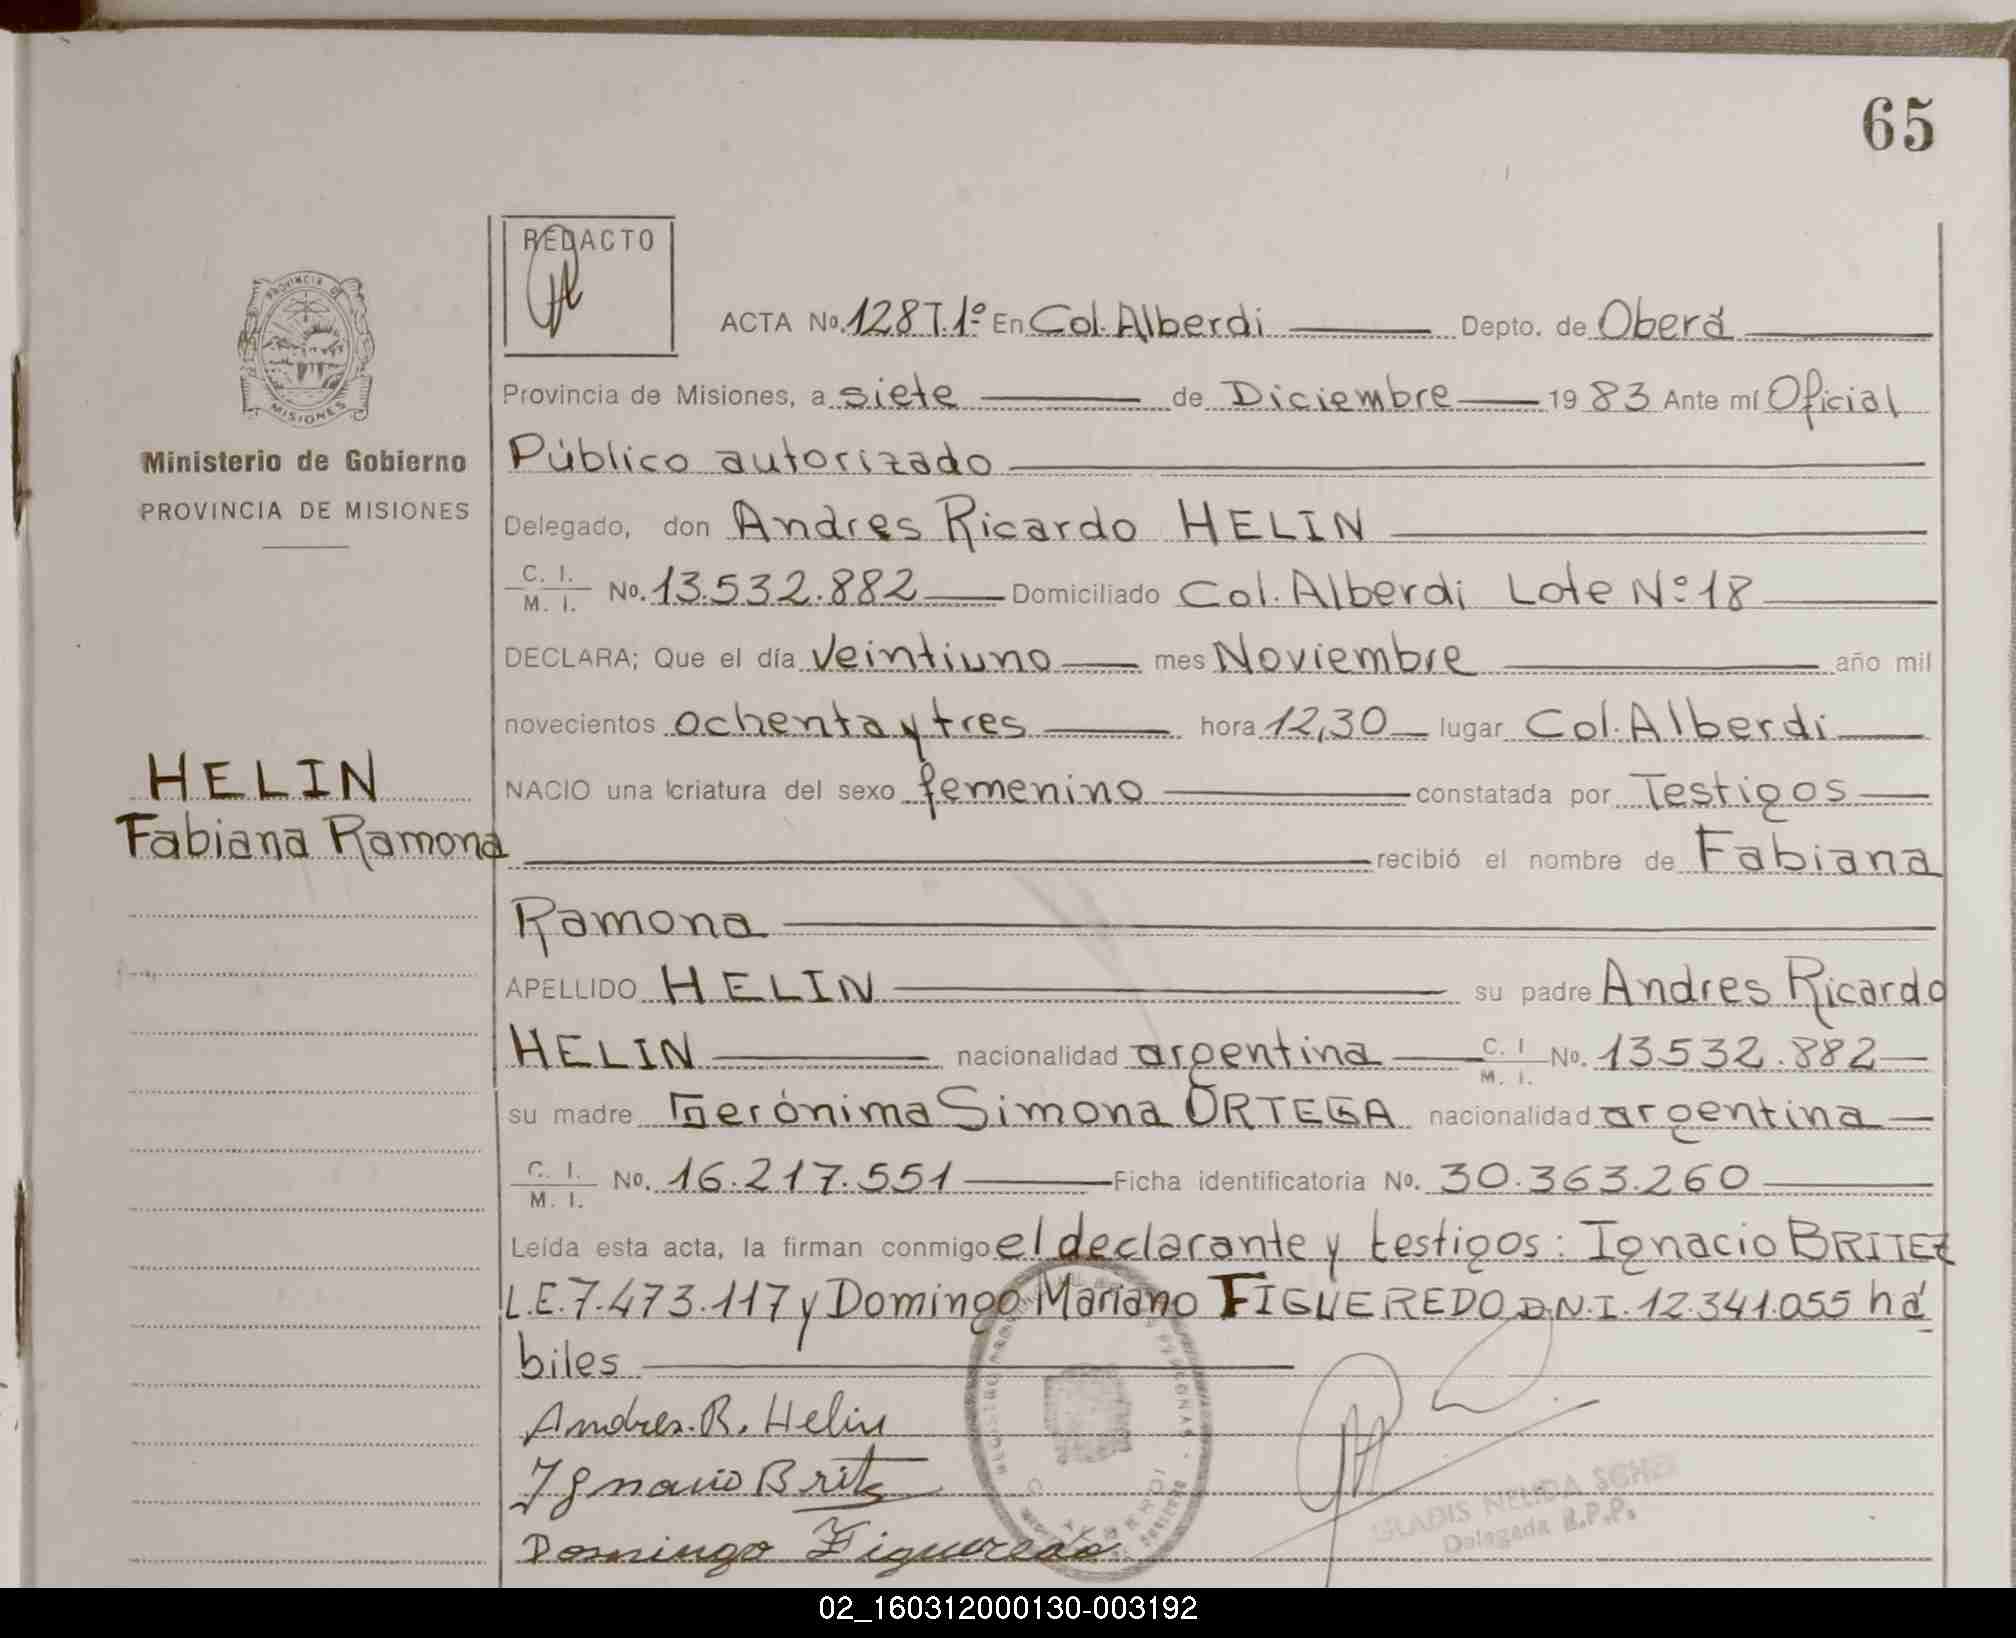 65
REDACTO
PROVINCIA DE
MISIONES
Ministerio de Gobierno
PROVINCIA DE MISIONES
ACTA No. 128 T.1º En Col. Alberdi Depto. de Oberá
Provincia de Misiones, a siete de Diciembre 19 83 Ante mí Oficial
Público autorizado
Delegado, don Andres Ricardo HELIN
C. I. / M. I. No. 13.532.882 Domiciliado Col. Alberdi Lote Nº 18
DECLARA; Que el día veintiuno mes Noviembre año mil
novecientos ochenta y tres hora 12,30 lugar Col. Alberdi
NACIO una criatura del sexo femenino constatada por Testigos
HELIN
Fabiana Ramona
recibió el nombre de Fabiana
Ramona
APELLIDO HELIN su padre Andres Ricardo
HELIN nacionalidad argentina C. I / M. I. No. 13.532.882
su madre Gerónima Simona ORTEGA nacionalidad argentina
C. I. / M. I. No. 16.217.551 Ficha identificatoria No. 30.363.260
Leída esta acta, la firman conmigo el declarante y testigos: Ignacio BRITEZ
L.E. 7.473.117 y Domingo Mariano FIGUEREDO D.N.I. 12.341.055 há
biles
Andres. R. Helin
Ignacio Britz
Domingo Figueredo
GLADIS NELIDA
Delegada R.P.P.
02_160312000130-003192